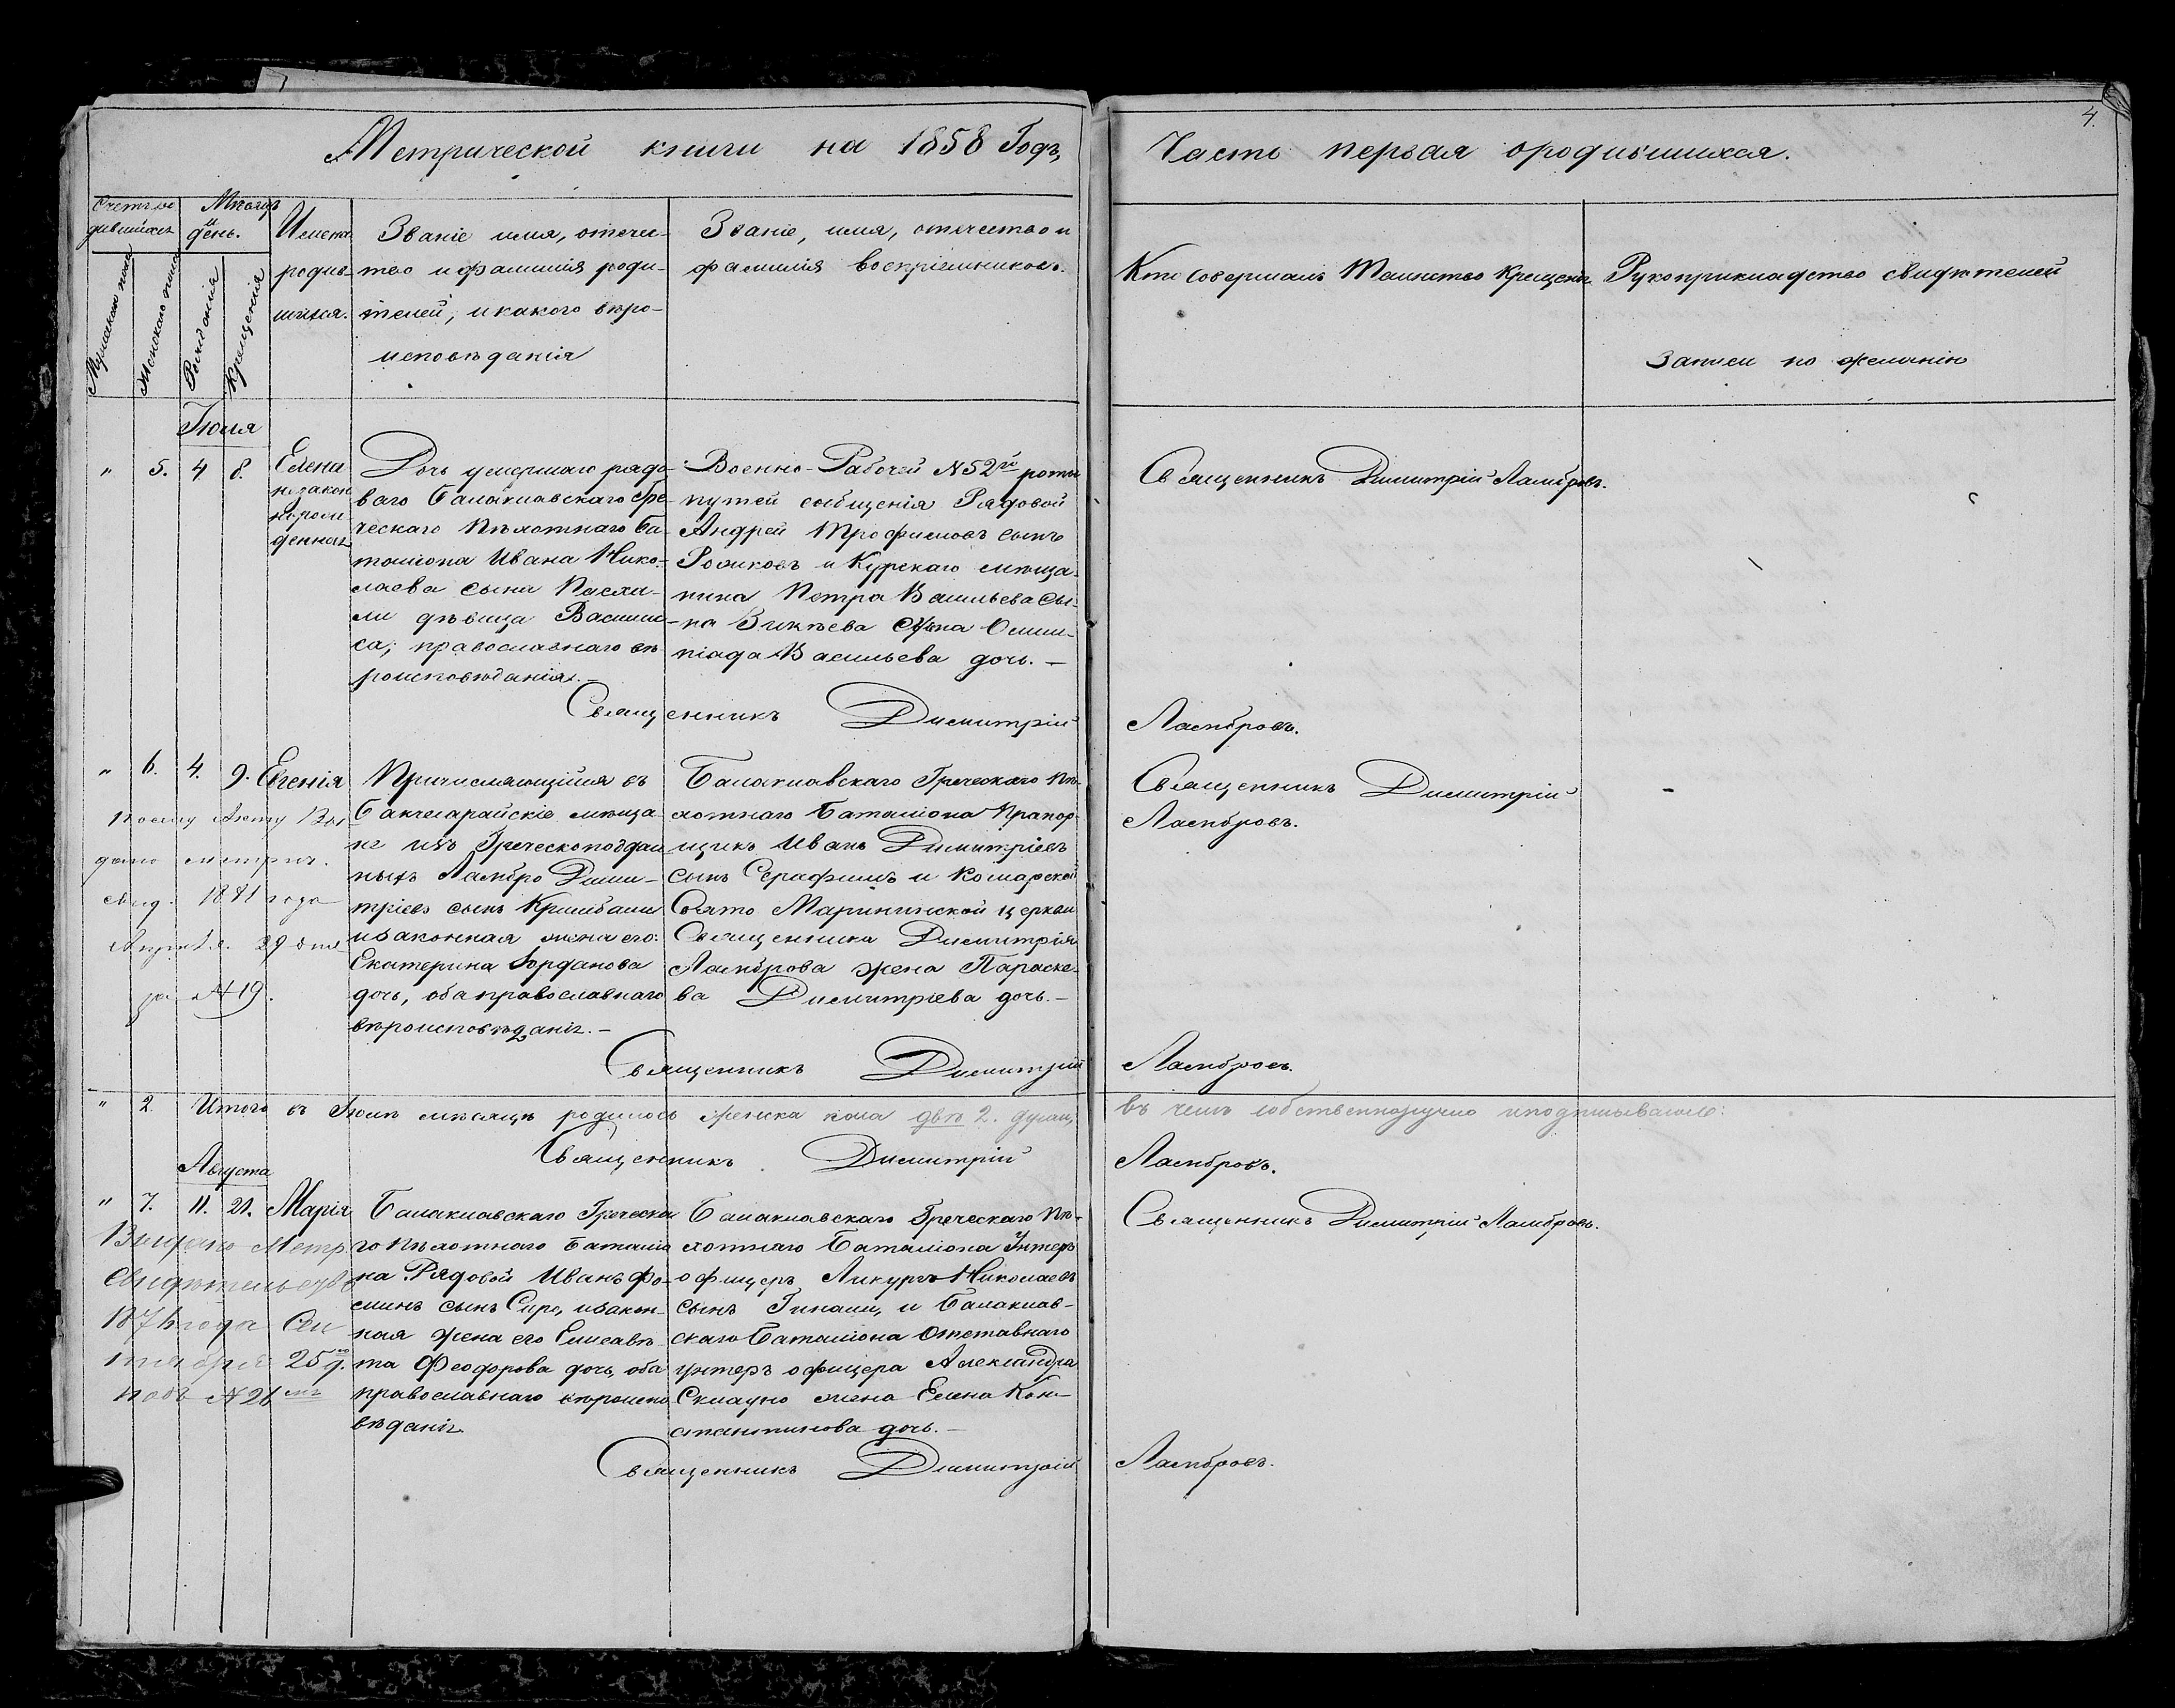 4.
Метрической книги на 1858 Годъ,
Часть первая ородившихся.
Мѣсяцъ
и
день.
Мужаска пола
Женскаго пола
Рожденія
Крещенія
Имена
родив-
шихся.
Званіе имя, отече-
тво и фамилія роди-
телей, и какого вѣро-
исповѣданія
Званіе, имя, отечество и
фамилія воспріемниковъ.
Кто совершалъ Таинство Крещенія
Рукоприкладство свидѣтелей
Записи по желанію
Іюля
" 5. 4 8.
Елена
незакон
норож
денная
Дочь умершаго рядо-
ваго Балаклавскаго Гре-
ческаго Пѣхотнаго Ба-
таліона Ивана Нико-
лаева сына Пасхи-
ли дѣвица Васили-
са, православнаго вѣ-
роисповѣданія.-
Военно-Рабочей №52й роты
путей сообщенія Рядовой
Андрей Трофимовъ сынъ
Рожковъ и Курскаго мѣща-
нина Петра Васильева сы-
на Зикѣева жена Олим-
піада Васильева дочь.-
Священникъ Димитрій Ламбровъ.
Священникъ Димитрій
Ламбровъ.
" 6. 4. 9.
Евгенія
по сему Акту Вы
дано метрич.
свид. 1881 года
Апрѣля 29 дня
за №19.
Причисляющійся въ
Бакчисарайскіе мѣща-
не изъ Греческоподдан
ныхъ Ламбро Дими-
тріевъ сынъ Кримбаши
изаконная жена его:
Екатерина Іорданова
дочь, оба православнаго
вѣроисповѣданія.-
Балаклавскаго Греческаго Пѣ-
хотнаго Баталіона Прапор-
щикъ Иванъ Димитріевъ
сынъ Серафимъ и Комарской
Свято Маріинской церкви
Священника Димитрія
Ламброва жена Параске-
ва Димитріева дочь.-
Священникъ Димитрій
Ламбровъ.
Священникъ Димитрій
Ламбровъ.
" 2. Итого въ Іюлѣ мѣсяцѣ родилось женска пола двѣ 2. души,
въ чемъ собственноручно иподписываемся:
Священникъ Димитрій
Ламбровъ.
Августа
" 7. 11. 21.
Марія
Выдано Метр.
Свидѣтельство
1876 года Сен
тября 25го д.
подъ №26мъ
Балаклавскаго Греческа
го Пѣхотнаго Баталіо
на Рядовой Иванъ Фо-
минъ сынъ Сиро, изакон-
ная жена его Елисаве-
та Феодорова дочь, оба
православнаго вѣроиспо
вѣданія
Балаклавскаго Греческаго Пѣ-
хотнаго Баталіона Унтеръ
офицеръ Ликургъ Николаевъ
сынъ Гинали, и Балаклав-
скаго Баталіона Отставнаго
унтеръ офицера Александра
жена Елена Кон-
стантинова дочь.-
Священникъ Димитрій Ламбровъ.
Священникъ Димитрій
Ламбровъ.